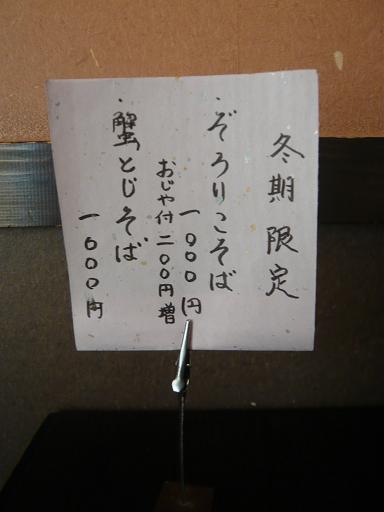 冬期限定
・ぞろりこそば
一〇〇〇円
おじや付二〇〇円増
・蟹とじそば
一六〇〇円